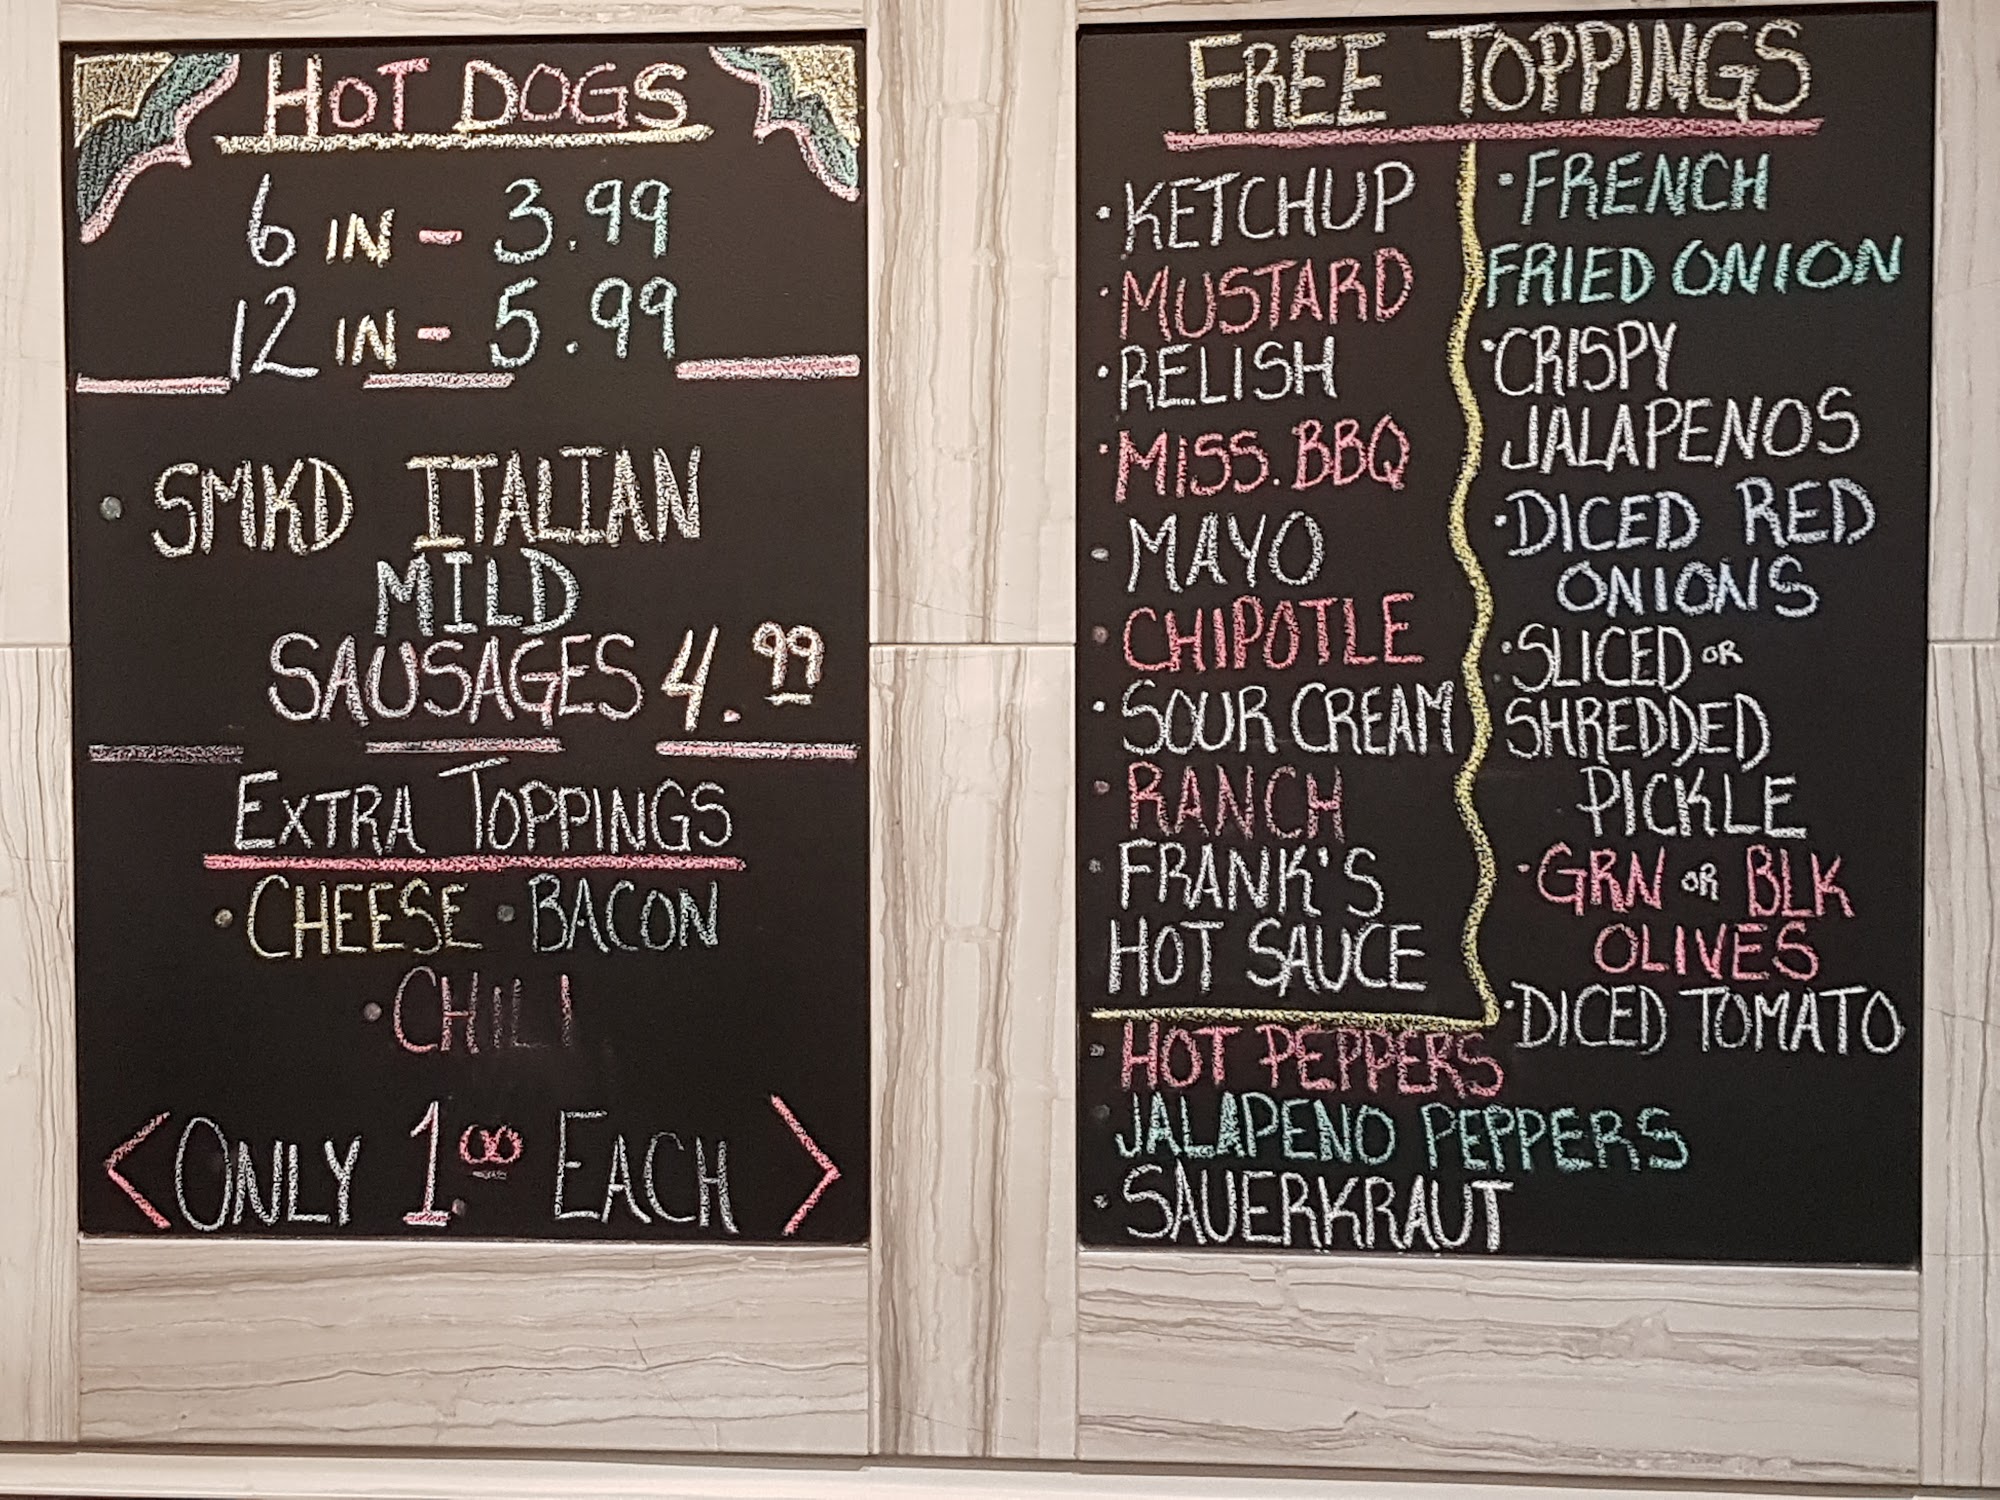 HOT DOGS
6 IN - 3.99
12 IN - 5.99
• SMKD ITALIAN
MILD
SAUSAGES 4.99
EXTRA TOPPINGS
• CHEESE • BACON
• CHILI
< ONLY 1.00 EACH >
FREE TOPPINGS
• KETCHUP
• MUSTARD
• RELISH
• MISS. BBQ
• MAYO
• CHIPOTLE
• SOUR CREAM
• RANCH
• FRANK'S
HOT SAUCE
• HOT PEPPERS
• JALAPENO PEPPERS
• SAUERKRAUT
• FRENCH
FRIED ONION
• CRISPY
JALAPENOS
• DICED RED
ONIONS
• SLICED OR
SHREDDED
PICKLE
• GRN OR BLK
OLIVES
• DICED TOMATO